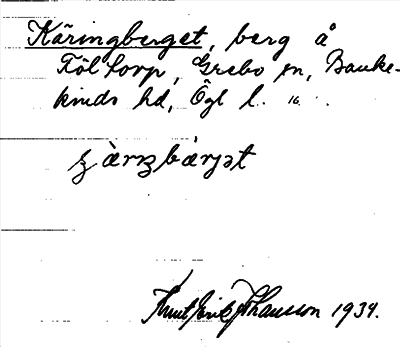 Käringberget, berg å
Föltorp, Grebo sn, Banke-
kinds hd, Ögl l. 16.
Knut Erik Johansson 1934.